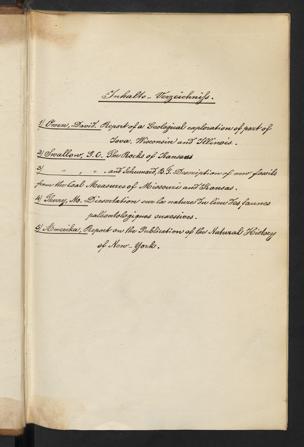 Inhalts-Verzeichniß.
1) Owen, David. Report of a Geological exploration of part of
Iowa, Wisconsin and Illinois.
2) Swallow, G.C. The Rocks of Kansas
3) " " " and Schumard, B.F. Description of new fossils
from the Coal Measures of Missouri and Kansas.
4) Thury, M. Dissertation sur la nature du lien des faunes
paléontologiques successives.
5) Amerika, Report on the Publication of the Natural History
of New-York.